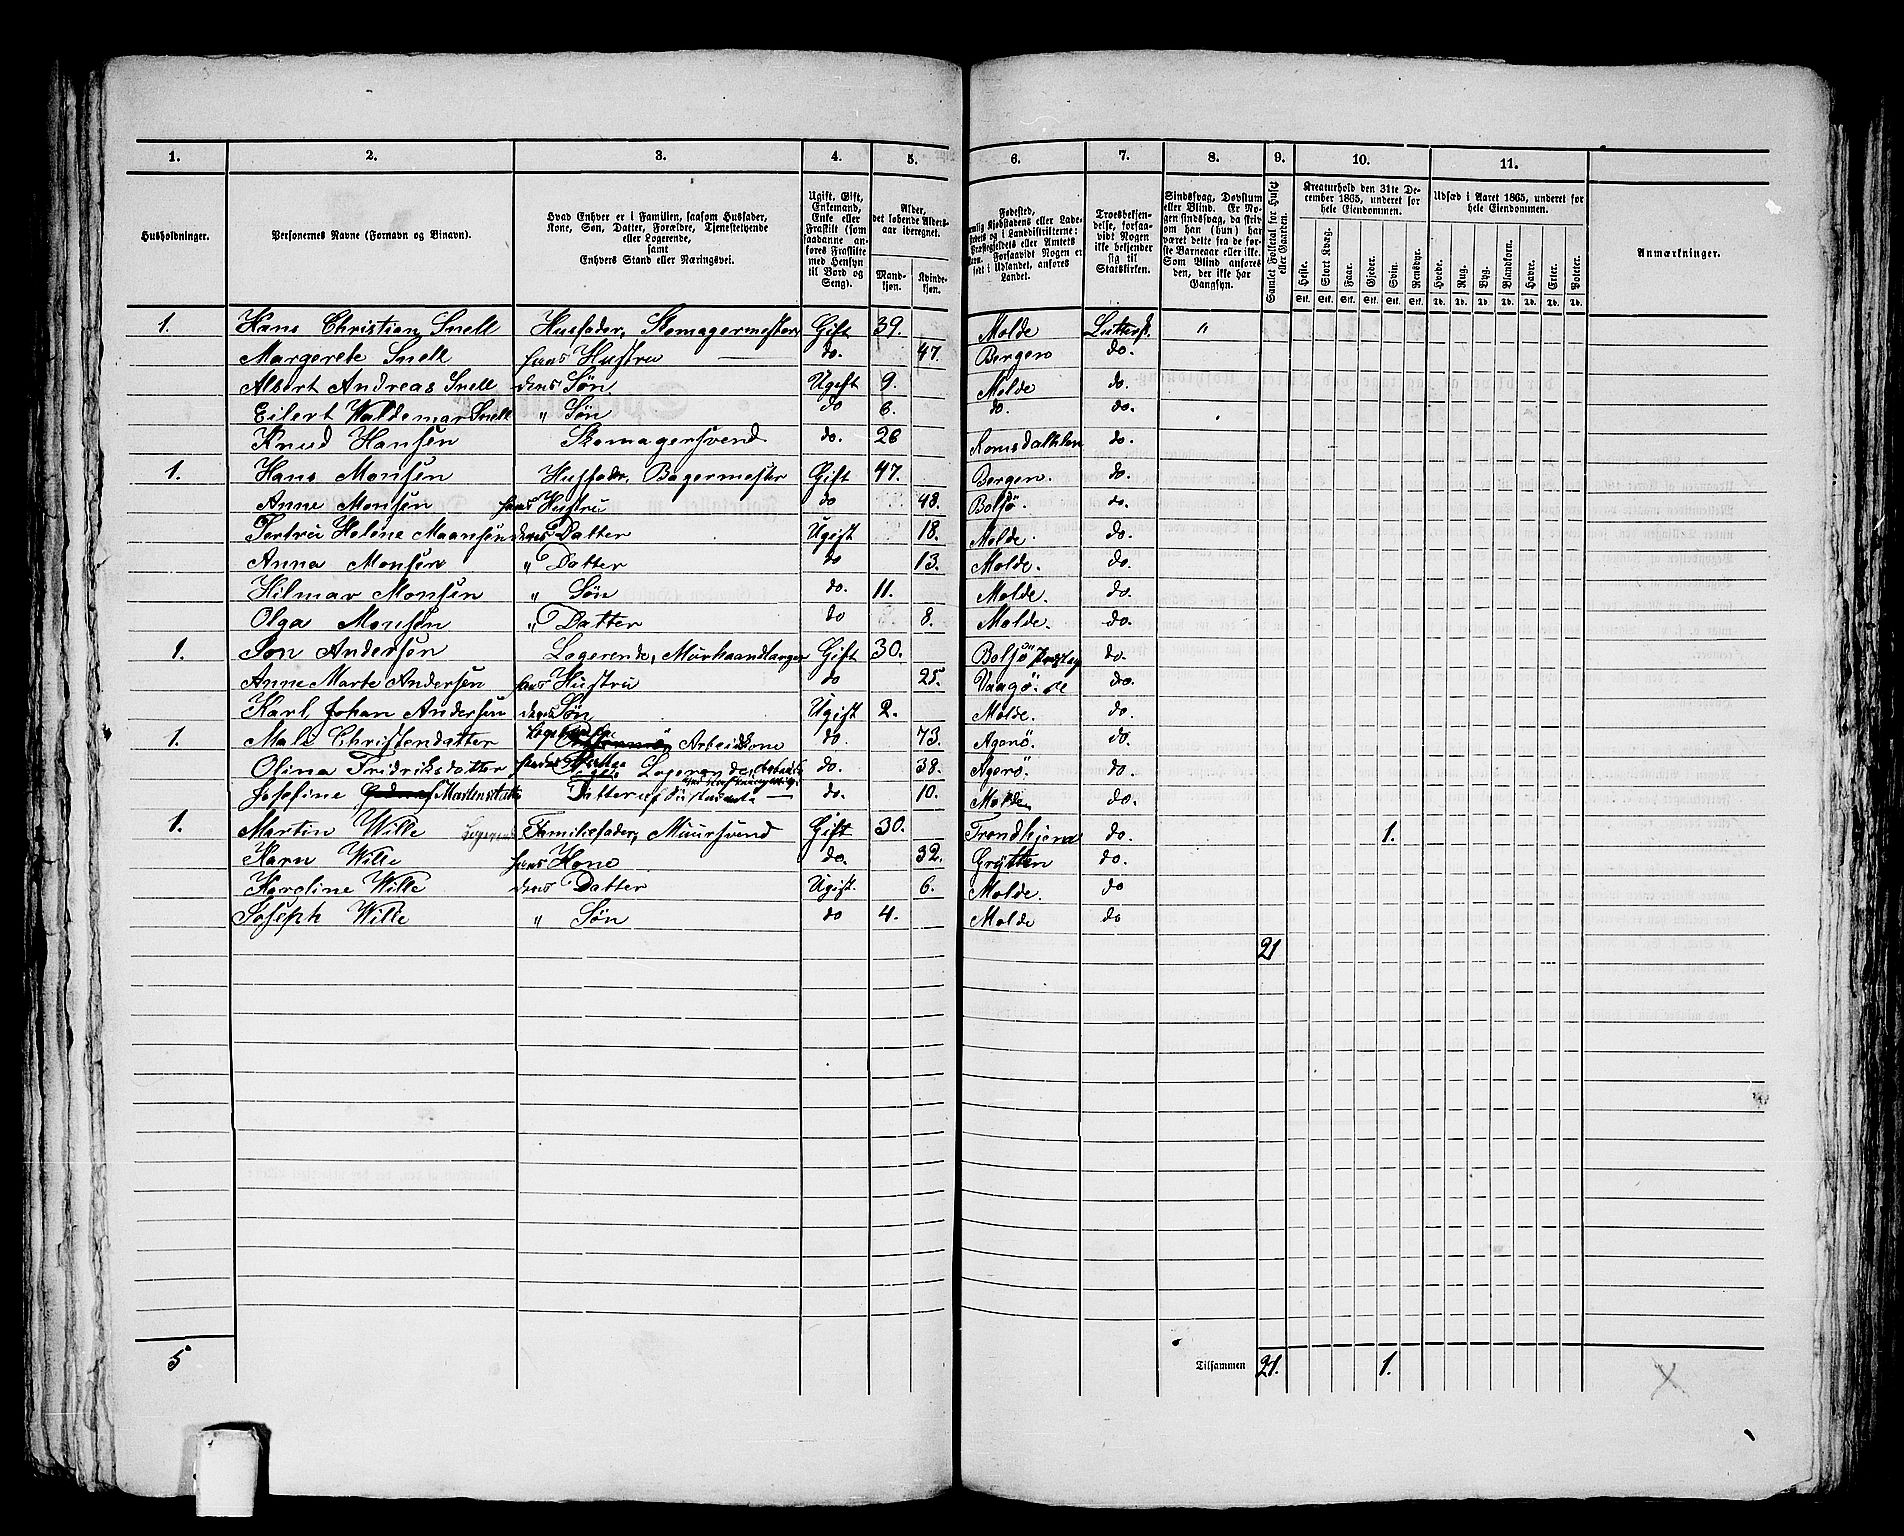 1. 2. 3. 4. 5. 6. 7. 8. 9. 10. 11.
Husholdninger.
Personernes Navne (Fornavn og Binavn).
Hvad Enhver er i Familien, saasom Husfader, Kone, Søn, Datter, Forældre, Tjenestetyende eller Logerende, samt Enhvers Stand eller Næringsvei.
Ugift, Gift, Enkemand, Enke eller Fraskilt (som saadanne anføres Fraskilte med Hensyn til Bord og Seng).
Alder, det løbende Alders-aar iberegnet.
Mand-kjøn. Kvinde-kjøn.
Fødested, Kjøbstadens eller Lade-stedets og i Landdistrikterne: Præstegjeldets eller Amtets Navn. Forsaavidt Nogen er født i Udlandet, anføres Landet.
Troesbekjen-delse, forsaa-vidt Nogen ikke bekjender sig til Statskirken.
Sindssvag, Døvstum eller Blind. Er No-gen sindssvag, da skrives om han (hun) har været dette fra de første Barneaar eller ikke. Som Blind anføres den, der ikke har Gangsyn.
Samlet Folketal for Huset eller Gaarden.
Kreaturhold den 31te De-cember 1865, underet for hele Eiendommen.
Heste. Stort Kvæg. Faar. Gjeder. Svin. Rensdyr.
Stk. Stk. Stk. Stk. Stk. Stk.
Udsæd i Aaret 1865, underet for hele Eiendommen.
Hvede. Rug. Byg. Blandkorn. Havre. Erter. Poteter.
Td. Td. Td. Td. Td. Td. Td.
Anmærkninger.
1. Hans Christian Snell Husfader, Skomagermester Gift 39. Molde Luthersk "
Margerete Snell hans Hustru do. 47. Bergen do.
Albert Andreas Snell deres Søn Ugift 9. Molde do.
Eilert Waldemar Snell " Søn do 6. do. do.
Knud Hansen Skomagersvend do. 26 do.
1. Hans Monsen Husfader, Bagermester Gift 47. Bergen. do.
Anne Monsen hans Hustru do 48. Bolsø. do.
Helene deres Datter Ugift 18. Molde. do.
Anna Monsen " Datter do 13. Molde. do.
Hilmar Monsen " Søn do. 11. Molde. do.
Olga Monsen " Datter do 8. Molde. do.
1. Andersen Logerende, Murhaandlanger Gift 30. Bolsø do.
Anne Marte Andersen hans Hustru do 25. Vaagø do.
Karl Johan Andersen deres Søn Ugift 2. Molde. do.
1. Christensdatter do. 73. Agerø. do.
Olina Fridriksdatter Logerende, do. 38. Agerø. do.
Josefine Datter do. 10. Molde do.
1. Martin Wille Logerende Familiefader, Muursvend Gift 30. Trondhjem do. 1.
Karn Wille hans Kone do. 32. Grytten do.
Karoline Wille deres Datter Ugift. 6. Molde. do
Joseph Wille " Søn do 4. Molde do
21
5 Tilsammen 21. 1.